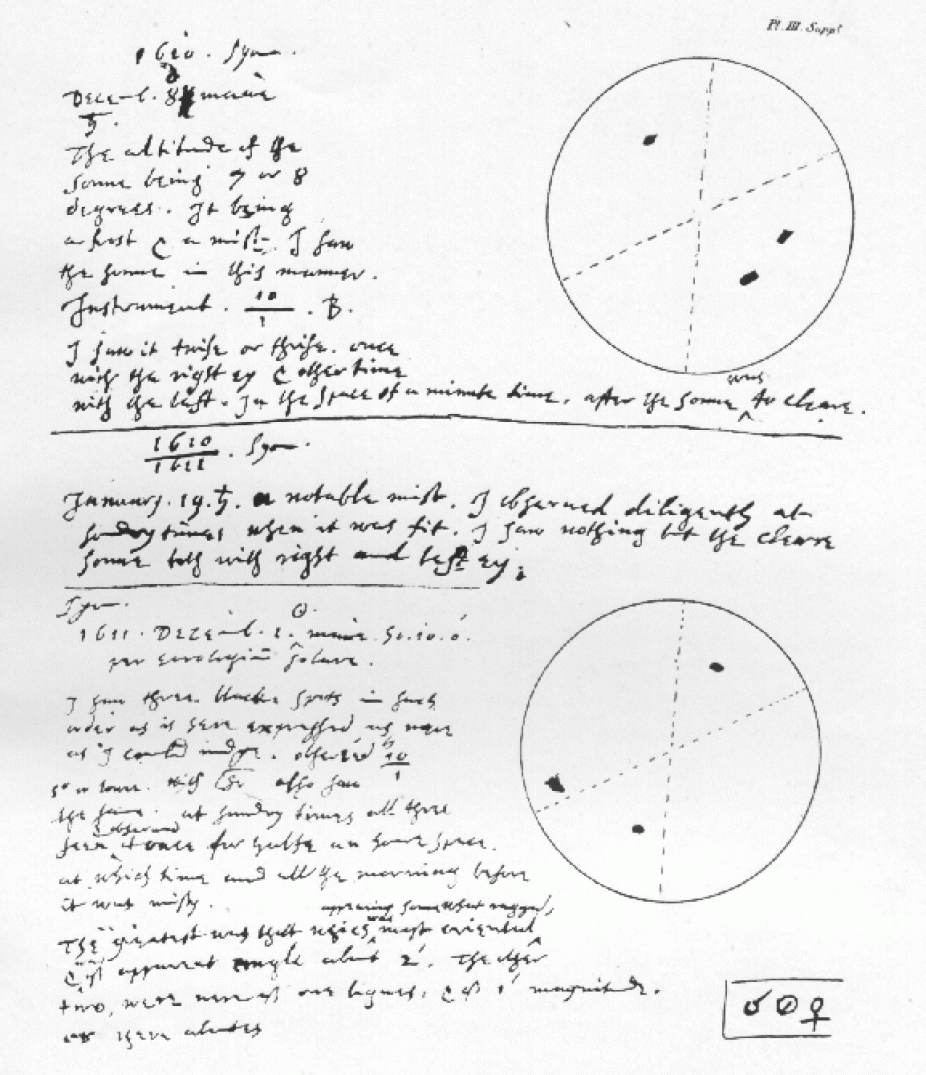 Pl. III. Suppl
1610. Syon.
Decemb. 8 mane
♄.
The altitude of the
sonne being 7 or 8
degrees. It being
a frost & a mist. I saw
the sonne in this manner.
Instrument. 10/1 . B.
I saw it twise or thrise. once
with the right ey & other time
with the left. In the space of a minute time, after the sonne was to cleare.
1610/1611 . Syon.
January. 19. ♄. a notable mist. I observed diligently at
sundry times when it was fit. I saw nothing but the cleare
sonne both with right and left ey.
Syon.
☉.
1611. Decemb. 1. mane. 
per horologium solare.
I saw three blacke spots in such
order as is here expressed as nere
as I could judge. observed 10/1
with also saw
the same. at sundry times all three
seen & observed at once for halfe an houre space.
at which time and all the morning before
it was misty.
appearing somewhat ragged,
The greatest was that which was most oriental
& of apparent angle about 2'. The other
two, were nere of one bignes, & of 1' magnitude.
or there aboutes
♂ ☉ ♀